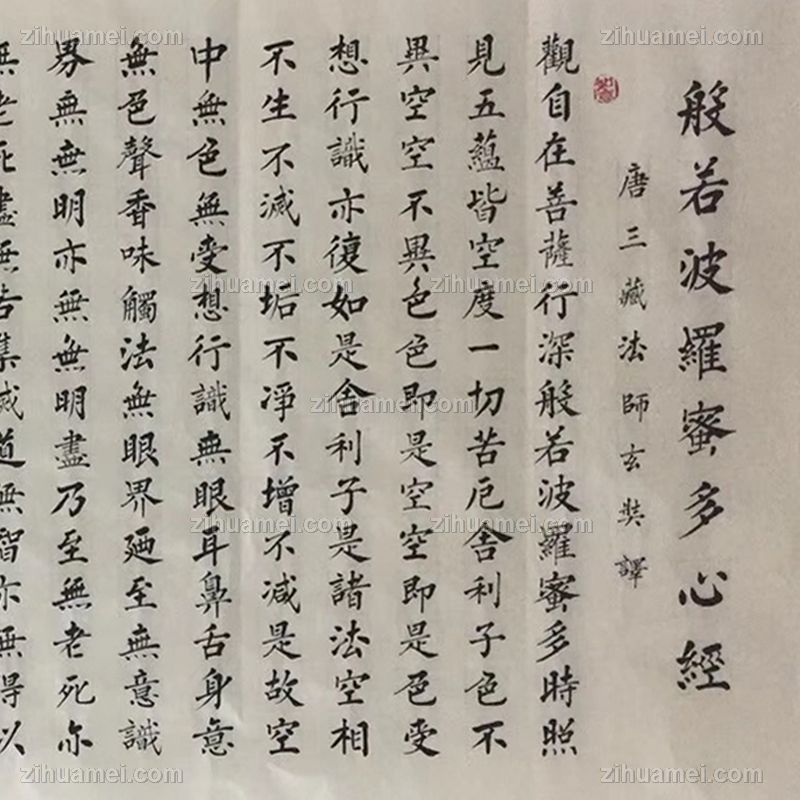 般若波羅蜜多心經
唐三藏法師玄奘譯
觀自在菩薩行深般若波羅蜜多時照
見五蘊皆空度一切苦厄舍利子色不
異空空不異色色即是空空即是色受
想行識亦復如是舍利子是諸法空相
不生不滅不垢不淨不增不減是故空
中無色無受想行識無眼耳鼻舌身意
無色聲香味觸法無眼界廼至無意識
界無無明亦無無明盡乃至無老死亦
無老死盡無苦集滅道無智亦無得以
zihuamei.com zihuamei.com zihuamei.com
zihuamei.com zihuamei.com zihuamei.com
zihuamei.com zihuamei.com zihuamei.com
zihuamei.com zihuamei.com zihuamei.com
zihuamei.com zihuamei.com zihuamei.com
zihuamei.com zihuamei.com zihuamei.com
zihuamei.com zihuamei.com zihuamei.com